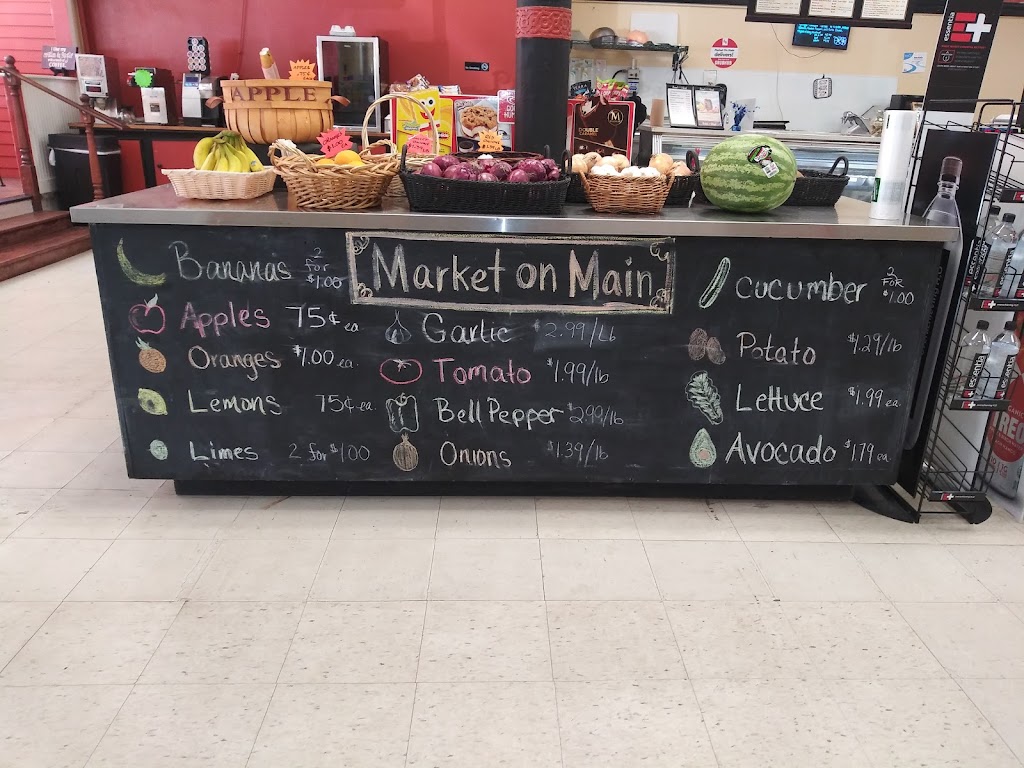 APPLE
essentia
Market on Main
Bananas 2 for $1.00
Apples 75¢ ea
Oranges $1.00 ea.
Lemons 75¢ ea.
Limes 2 for $1.00
Garlic $2.99/Lb
Tomato $1.99/lb
Bell Pepper $2.99/lb
Onions $1.39/lb
cucumber 2 FOR $1.00
Potato $1.29/lb
Lettuce $1.99 ea.
Avocado $1.79 ea.
DOUBLE CARAMEL
essentia
essentia
essentia